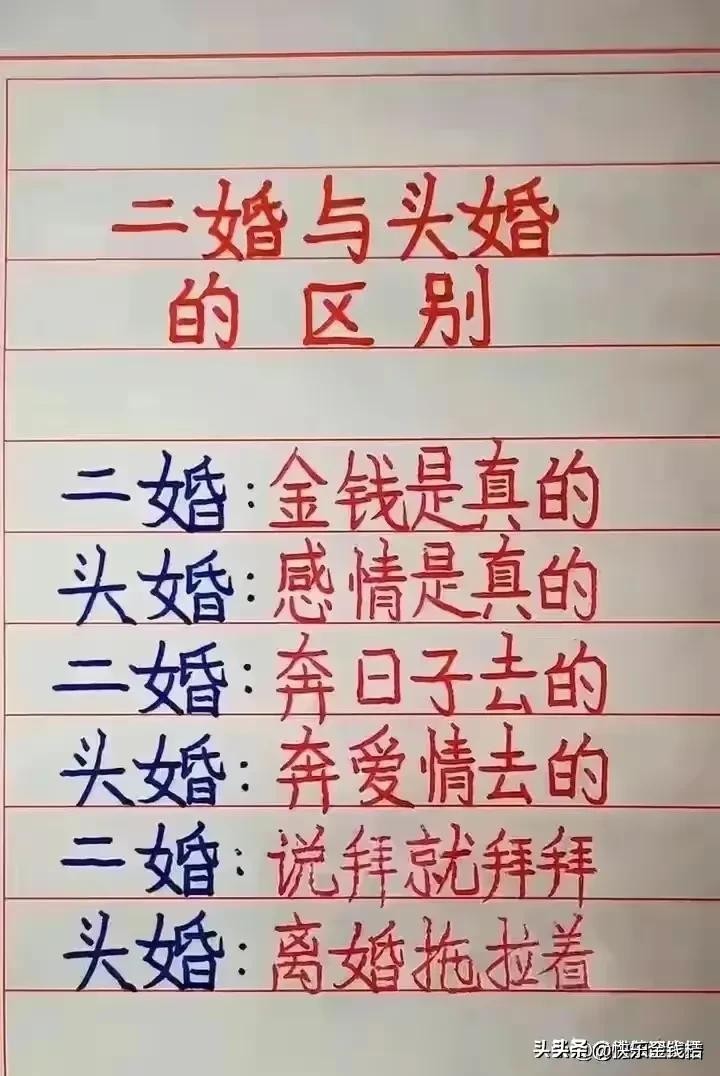 二婚与头婚
的区别
二婚:金钱是真的
头婚:感情是真的
二婚:奔日子去的
头婚:奔爱情去的
二婚:说拜就拜拜
头婚:离婚拖拉着
头条 @快乐金钱梧